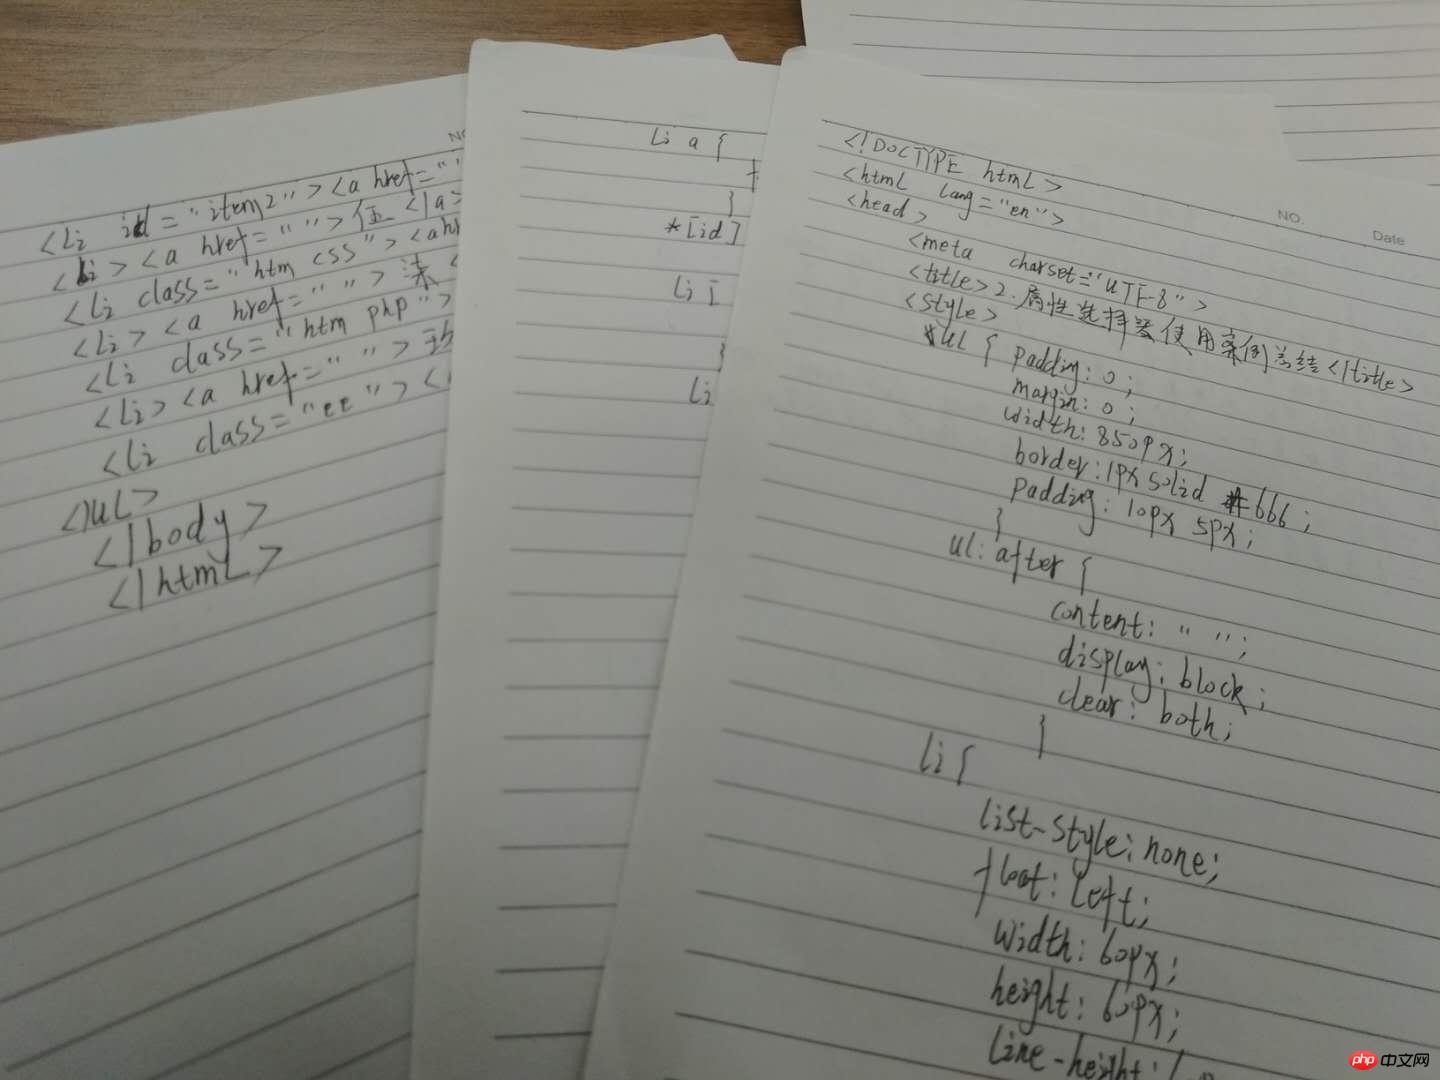 <li id="item2"><a href="
<li><a href=" ">伍</a>
<li class="htm css"><a h
<li><a href=" ">柒<
<li class="htm php">
<li><a href=" ">
<li class="ee"><
</ul>
</body>
</html>
NO
li a {
f
}
*[id]
li [
}
li
NO.
Date
<!DOCTYPE html>
<html lang="en">
<head>
<meta charset="UTF-8">
<title>2.属性选择器使用案例总结</title>
<style>
ul { padding: 0;
margin: 0;
width: 850px;
border: 1px solid #666;
padding: 10px 5px;
}
ul:after {
content: " ";
display: block;
clear: both;
}
li {
list-style: none;
float: left;
width: 60px;
height: 60px;
line-height:
php 中文网